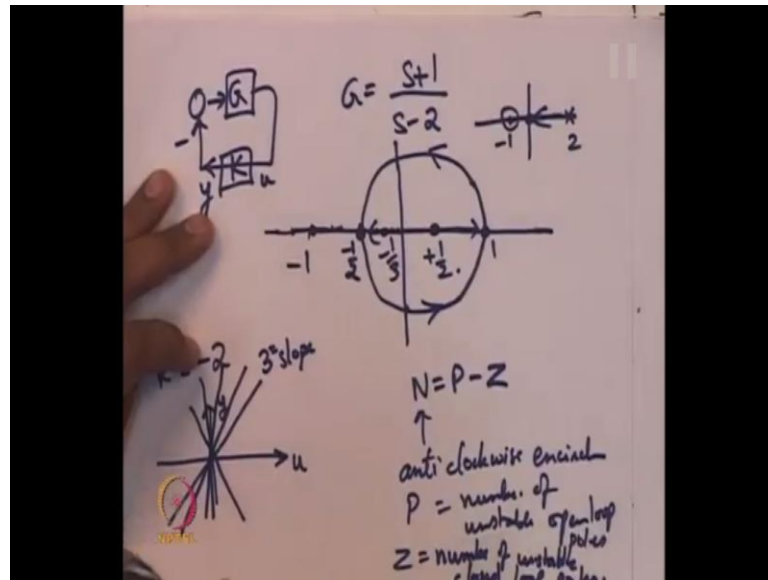 G
K
-
y
u
G = s+1 / s-2
-1
2
-1
-1/2
-1/3
+1/2
1
-2
3 = slope
y
u
N = P - Z
anti clockwise encircl
P = number of
unstable open loop
poles
Z = number of unstable
NPTEL